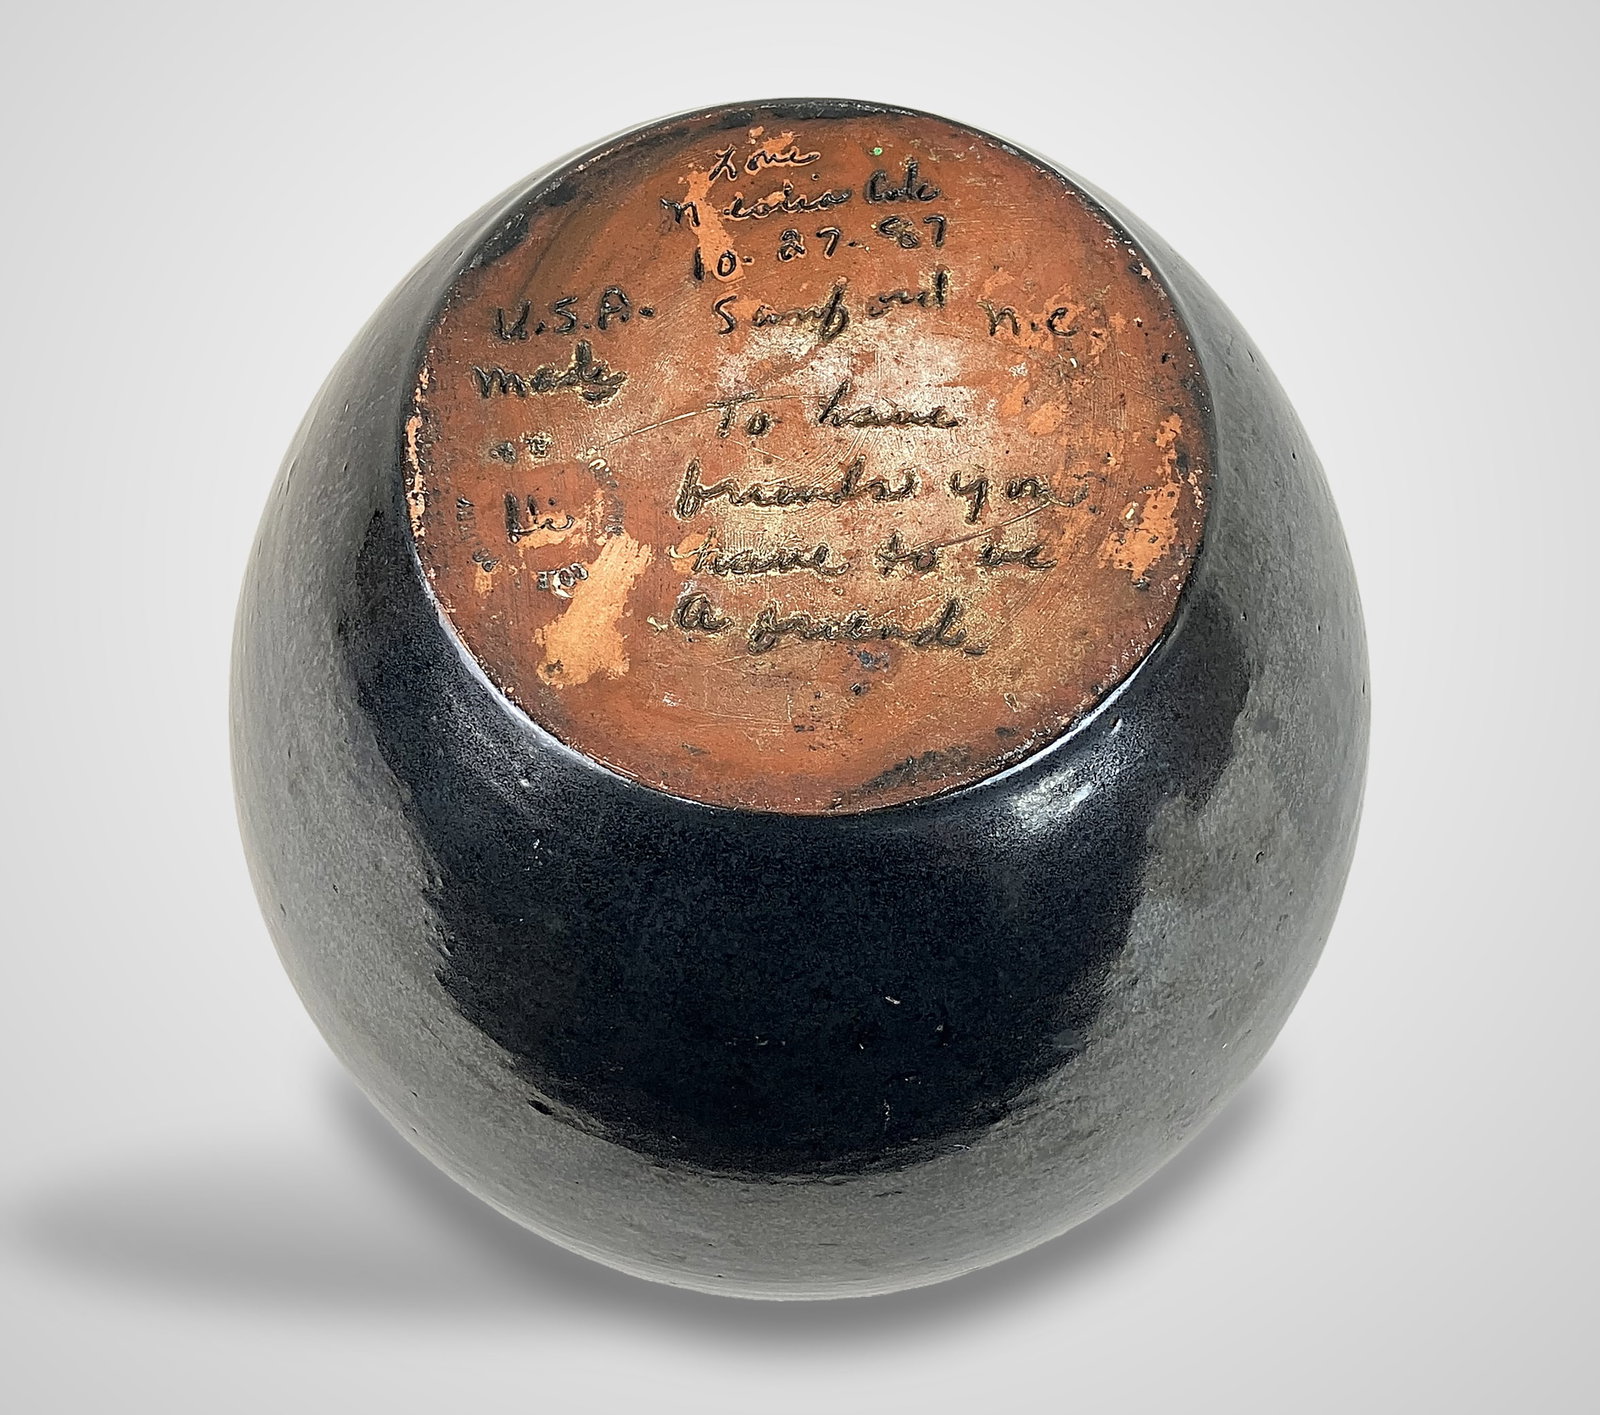 Love
Neolia Cole
10.27.87
U.S.A. Sanford N.C.
made
To have
friends you
have to be
a friend